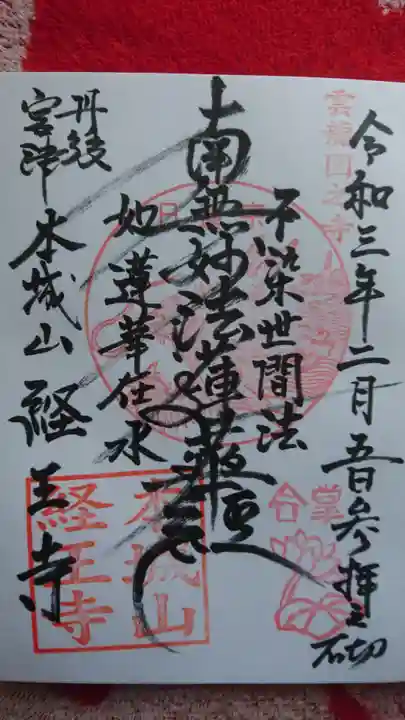 令和三年二月吾日参拝之砌
雲龍図之寺
不染世間法
南無妙法蓮華経
如蓮華在水
丹後
宮津 本城山 経王寺
合掌
本城山
経王寺